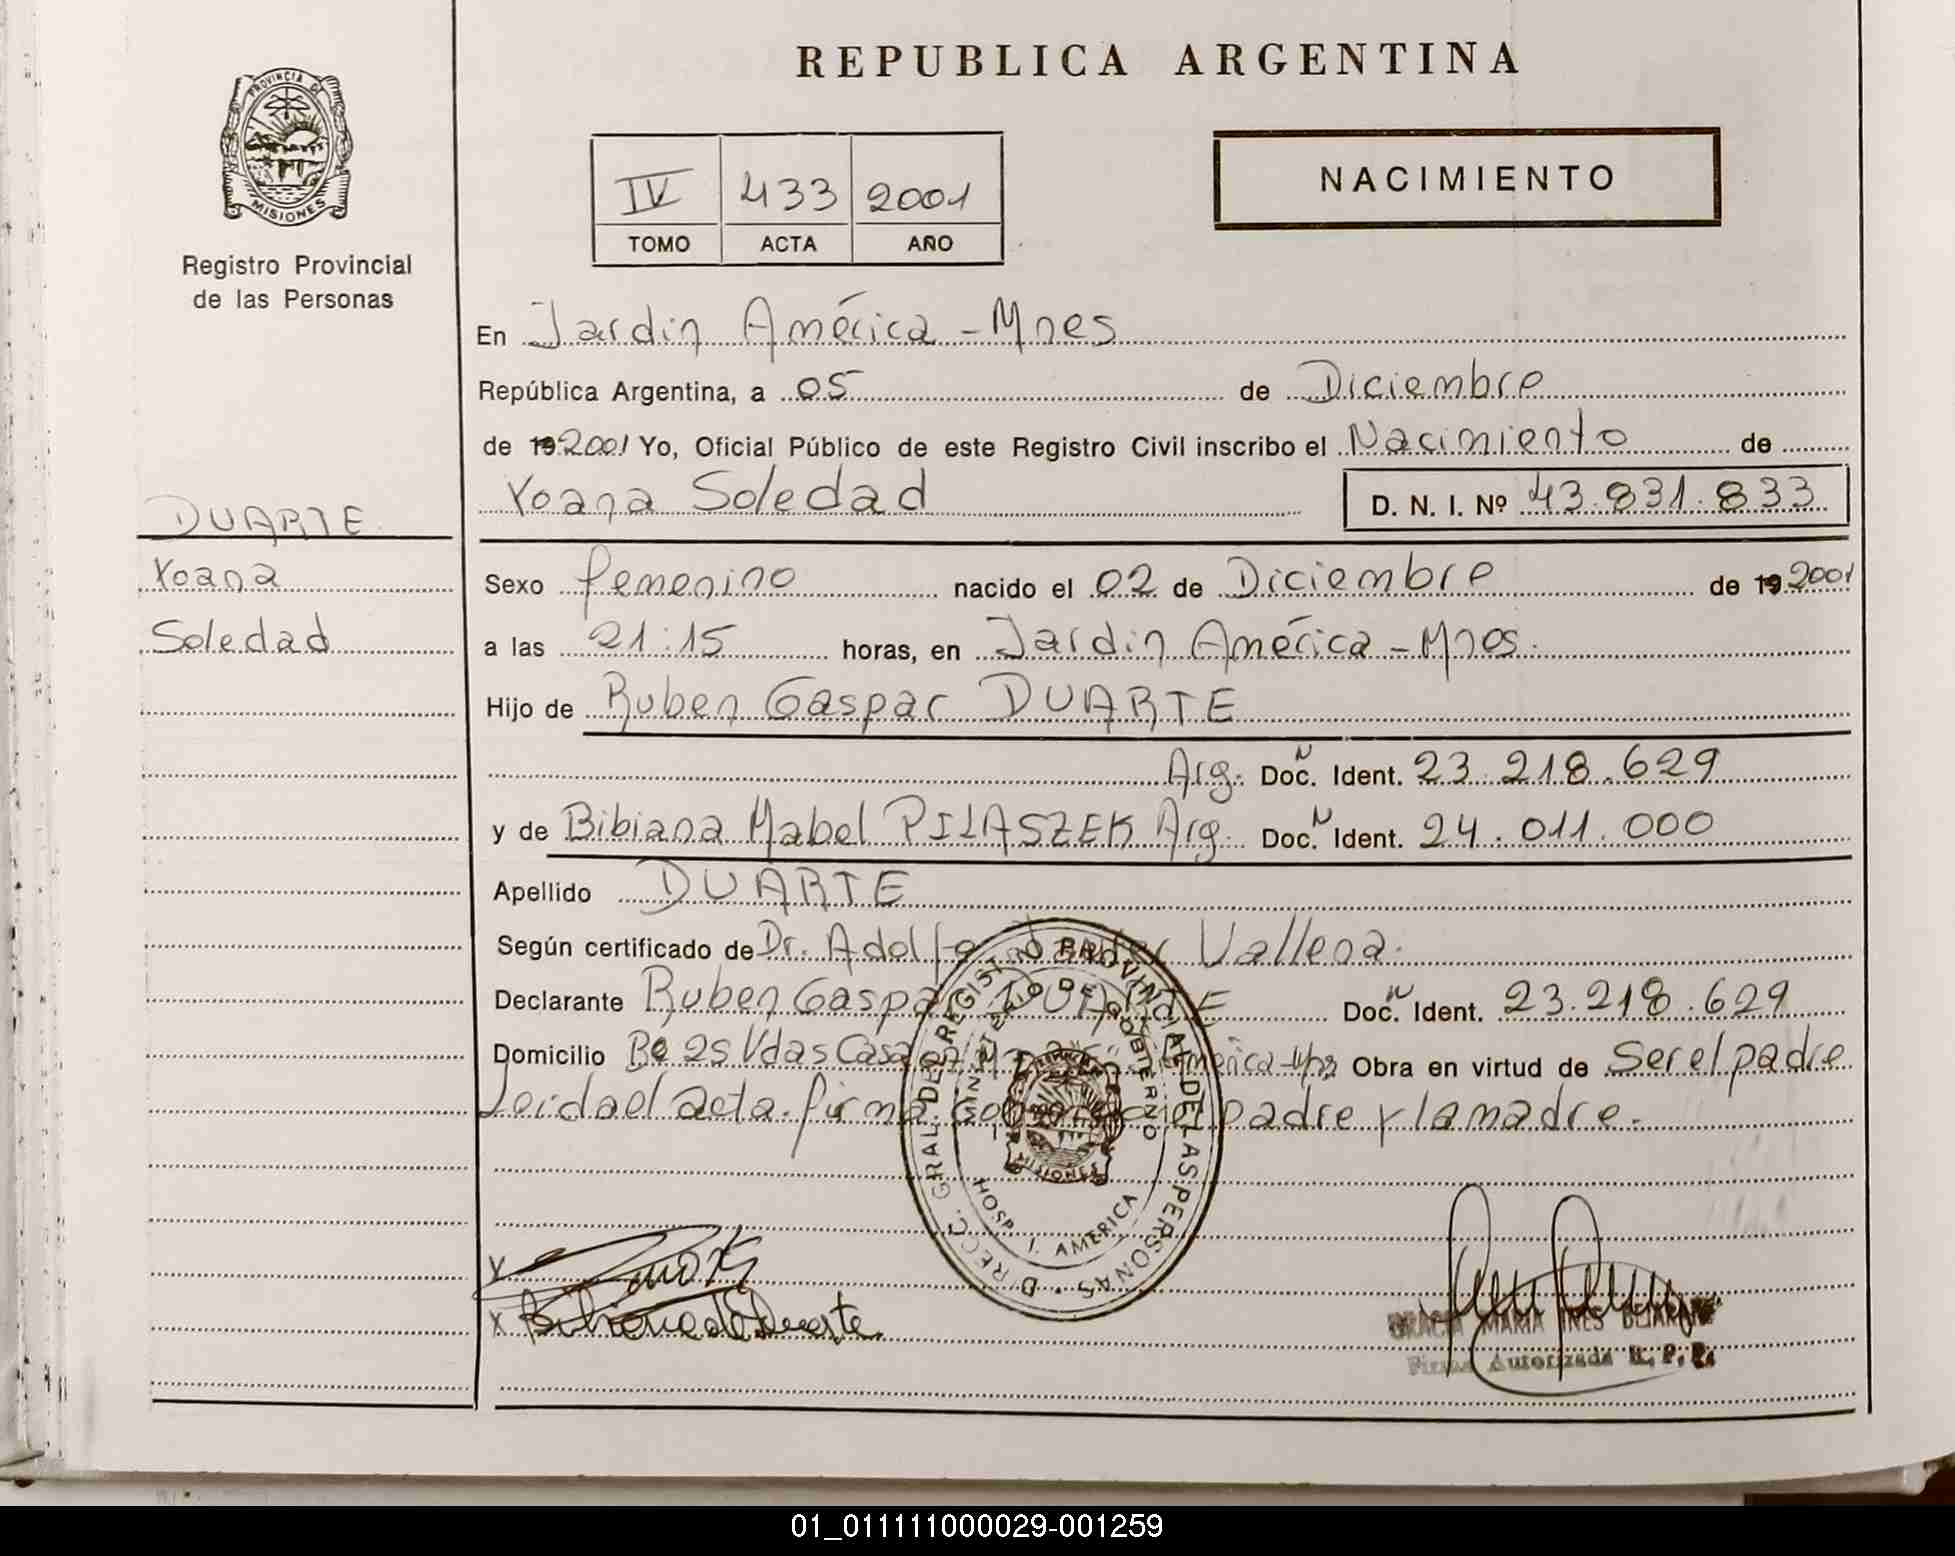 REPUBLICA ARGENTINA
PROVINCIA DE
MISIONES
Registro Provincial
de las Personas
IV 433 2001
TOMO ACTA AÑO
NACIMIENTO
En Jardin América - Mnes
República Argentina, a 05 de Diciembre
de 19 2001 Yo, Oficial Público de este Registro Civil inscribo el Nacimiento de
Yoana Soledad D. N. I. Nº 43.831.833
DUARTE
Yoana
Soledad
Sexo femenino nacido el 02 de Diciembre de 19 2001
a las 21:15 horas, en Jardin América - Mnes.
Hijo de Ruben Gaspar DUARTE
Arg. Doc. N Ident. 23.218.629
y de Bibiana Mabel PILASZEK Arg. Doc. N Ident. 24.011.000
Apellido DUARTE
Según certificado de Dr. Adolfo Vallena.
Declarante Ruben Gaspar DUARTE Doc. N Ident. 23.218.629
Domicilio Bº 25 Vdas Casa América - Mnes Obra en virtud de Ser el padre
Leida el acta. firma el padre y la madre.
DIRECC. GRAL. DEL REGISTRO PROVINCIAL DE LAS PERSONAS
MINISTERIO DE GOBIERNO
MISIONES
HOSP. J. AMERICA
X
X Bibiana de Duarte
GRACIA MARIA INES
Firma Autorizada R. P. P.
01_011111000029-001259